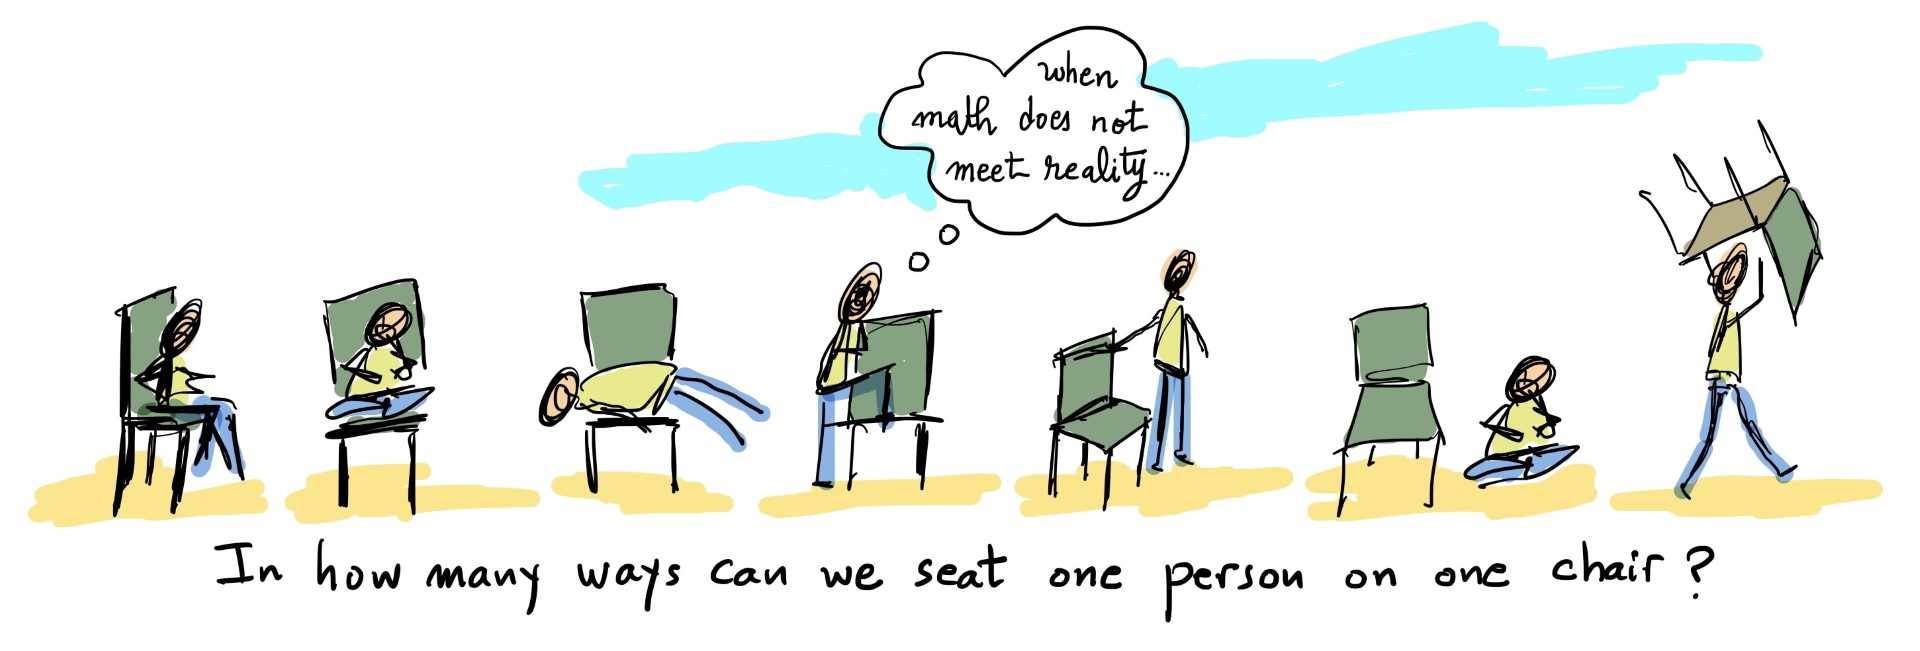 when
math does not
meet reality...
In how many ways can we seat one person on one chair?